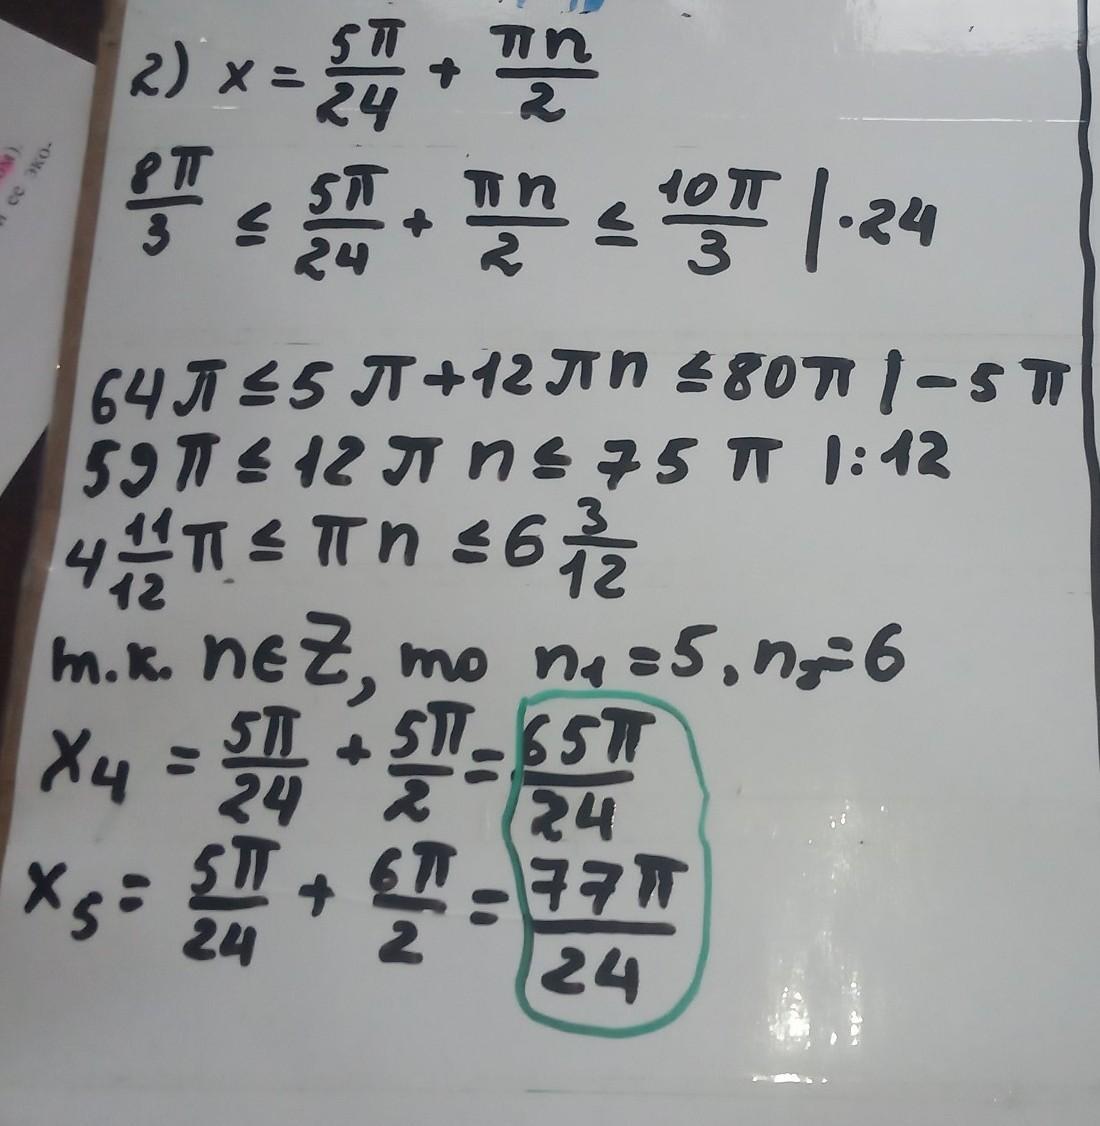 2) x = 5π/24 + πn/2
8π/3 ≤ 5π/24 + πn/2 ≤ 10π/3 | ·24
64π ≤ 5π + 12πn ≤ 80π | - 5π
59π ≤ 12πn ≤ 75π | : 12
4 11/12 π ≤ πn ≤ 6 3/12
т.к. n∈Z, то n₁ = 5, n₂ = 6
x₄ = 5π/24 + 5π/2 = 65π/24
x₅ = 5π/24 + 6π/2 = 77π/24
ее эко-